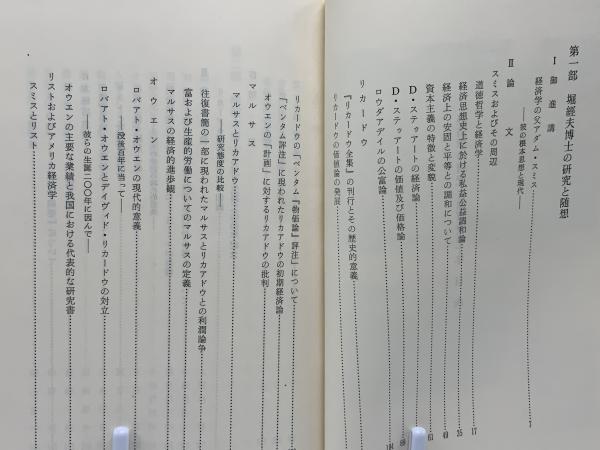 第一部　堀經夫博士の研究と随想
Ⅰ　御進講
経済学の父アダム・スミス……7
――彼の根本思想と現代――
Ⅱ　論文
スミスおよびその周辺
道徳哲学と経済学……17
経済思想史上に於ける私益公益調和論……25
経済上の安固と平等との調和について……49
資本主義の特徴と変貌……61
D・ステュアートの経済論
D・ステュアートの価値及び価格論
ロウダアデイルの公富論……104
リカードウ
『リカードウ全集』の刊行とその歴史的意義
リカードウの価値論の発展
リカードウの「ベンタム『物価論』評注」について
「ベンタム評注」に現われたリカアドウの初期経済論
オウエンの「計画」に対するリカアドウの批判
マルサス
マルサスとリカアドウ
――研究態度の比較――
往復書簡の一部に現われたマルサスとリカアドウとの利潤論争
富および生産的労働についてのマルサスの定義
マルサスの経済的進歩観
オウエン
ロバアト・オウエンの現代的意義
――没後百年に当って――
ロバアト・オウエンとデイヴィド・リカードウの対立
――彼らの生誕二〇〇年に因んで――
オウエンの主要な業績と我国における代表的な研究書
リストおよびアメリカ経済学
スミスとリスト